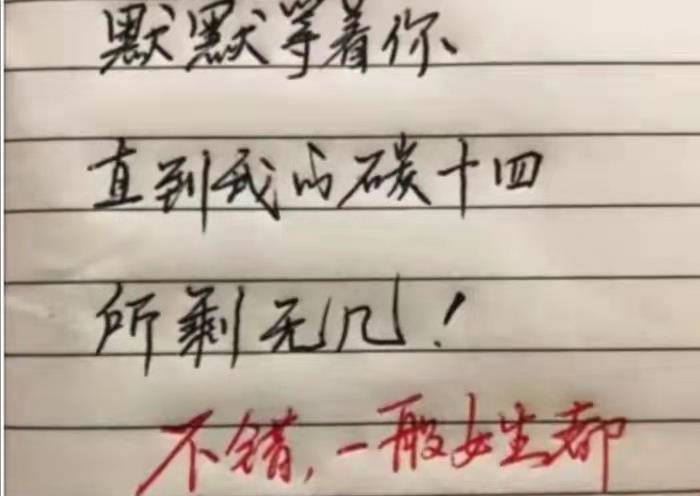 默默等着你
直到我的碳十四
所剩无几！
不错，一般女生都